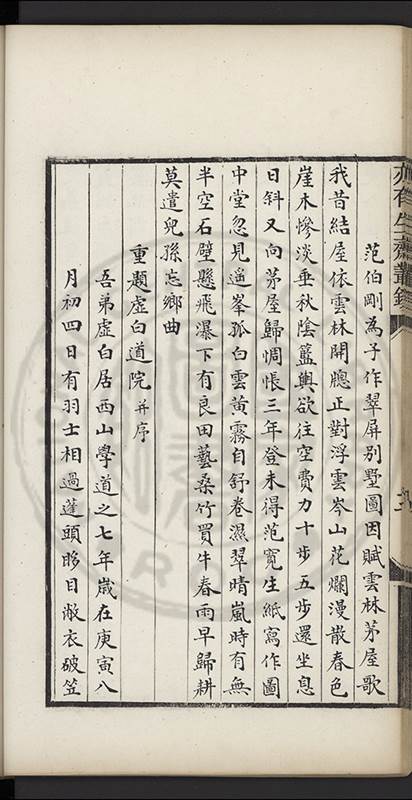 范伯剛為予作翠屏别墅圖因賦雲林茅屋歌
我昔結屋依雲林開牕正對浮雲岑山花爛漫散春色
崖木慘淡垂秋陰籃輿欲往空費力十步五步還坐息
日斜又向茅屋歸惆悵三年登未得范寬生紙寫作圖
中堂忽見遥峯孤白雲黄霧自舒卷濕翠晴嵐時有無
半空石壁懸飛瀑下有良田藝桑竹買牛春雨早歸耕
莫遣兒孫忘鄉曲
重題虚白道院并序
吾弟虚白居西山學道之七年歲在庚寅八
月初四日有羽士相過蓬頭眵目敝衣破笠